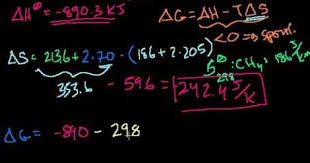 ΔH° = -890.3 KJ
ΔG = ΔH - TΔS
<0 ⇒ spont.
ΔS = 213.6 + 2·70 - (186 + 2·205)
353.6 - 596 = -242.4 J/K
S°298 : CH4: 186 J/K
ΔG = -890 - 298